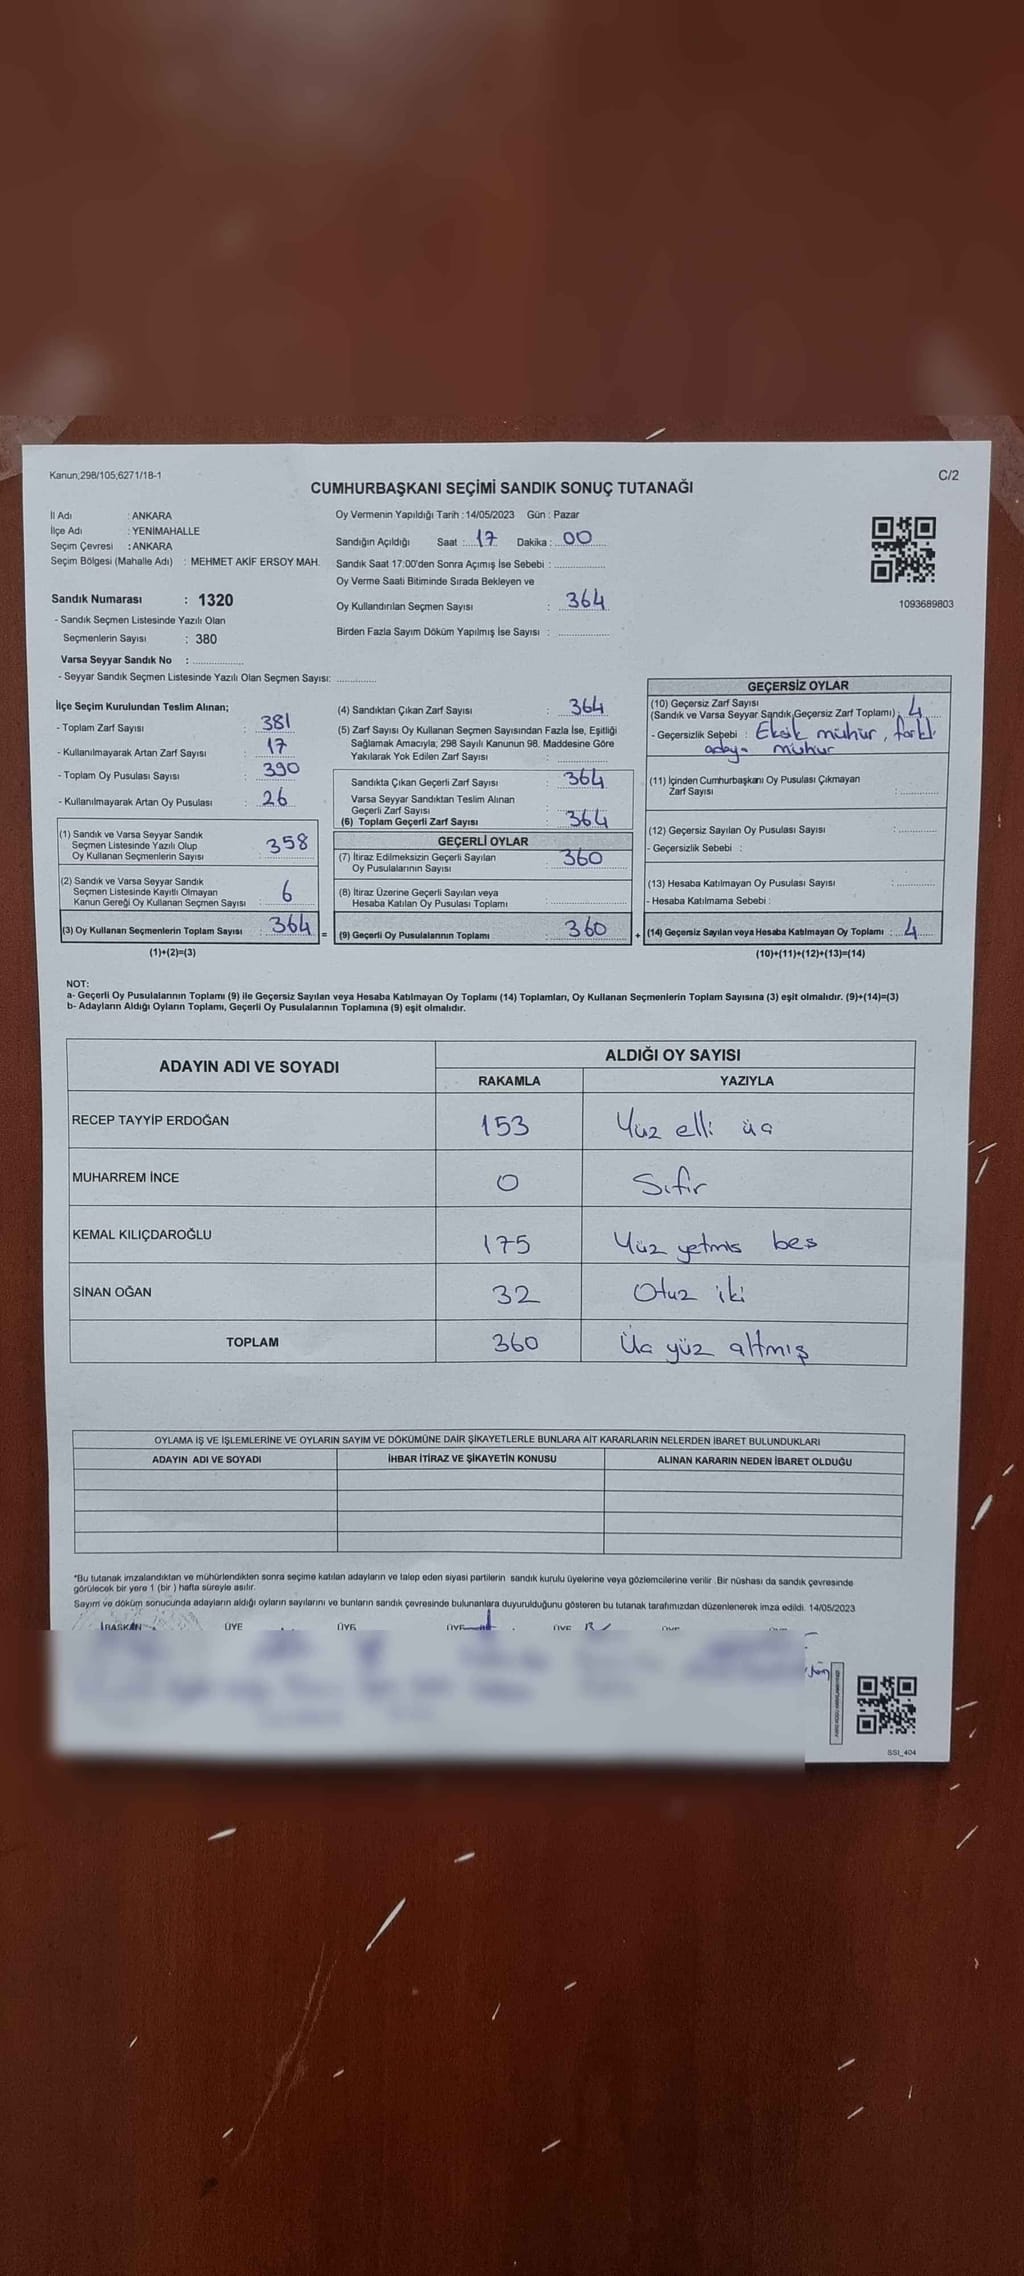 Kanun,298/105,6271/18-1
C/2
CUMHURBAŞKANI SEÇİMİ SANDIK SONUÇ TUTANAĞI
İl Adı : ANKARA
İlçe Adı : YENİMAHALLE
Seçim Çevresi : ANKARA
Seçim Bölgesi (Mahalle Adı) : MEHMET AKİF ERSOY MAH.
Sandık Numarası : 1320
- Sandık Seçmen Listesinde Yazılı Olan
Seçmenlerin Sayısı : 380
Varsa Seyyar Sandık No : ..................
- Seyyar Sandık Seçmen Listesinde Yazılı Olan Seçmen Sayısı: ..............
Oy Vermenin Yapıldığı Tarih : 14/05/2023 Gün : Pazar
Sandığın Açıldığı Saat : 17 Dakika : 00
Sandık Saat 17:00'den Sonra Açımış İse Sebebi : ..................
Oy Verme Saati Bitiminde Sırada Bekleyen ve
Oy Kullandırılan Seçmen Sayısı : 364
Birden Fazla Sayım Döküm Yapılmış İse Sayısı : ..................
1093689803
İlçe Seçim Kurulundan Teslim Alınan;
- Toplam Zarf Sayısı : 381
- Kullanılmayarak Artan Zarf Sayısı : 17
- Toplam Oy Pusulası Sayısı : 390
- Kullanılmayarak Artan Oy Pusulası : 26
(1) Sandık ve Varsa Seyyar Sandık
Seçmen Listesinde Yazılı Olup
Oy Kullanan Seçmenlerin Sayısı : 358
(2) Sandık ve Varsa Seyyar Sandık
Seçmen Listesinde Kayıtlı Olmayan
Kanun Gereği Oy Kullanan Seçmen Sayısı : 6
(3) Oy Kullanan Seçmenlerin Toplam Sayısı : 364 =
(1)+(2)=(3)
(4) Sandıktan Çıkan Zarf Sayısı : 364
(5) Zarf Sayısı Oy Kullanan Seçmen Sayısından Fazla İse, Eşitliği
Sağlamak Amacıyla; 298 Sayılı Kanunun 98. Maddesine Göre
Yakılarak Yok Edilen Zarf Sayısı : ..................
Sandıkta Çıkan Geçerli Zarf Sayısı : 364
Varsa Seyyar Sandıktan Teslim Alınan
Geçerli Zarf Sayısı :
(6) Toplam Geçerli Zarf Sayısı : 364
GEÇERLİ OYLAR
(7) İtiraz Edilmeksizin Geçerli Sayılan
Oy Pusulalarının Sayısı : 360
(8) İtiraz Üzerine Geçerli Sayılan veya
Hesaba Katılan Oy Pusulası Toplamı : ..................
(9) Geçerli Oy Pusulalarının Toplamı : 360 +
GEÇERSİZ OYLAR
(10) Geçersiz Zarf Sayısı
(Sandık ve Varsa Seyyar Sandık Geçersiz Zarf Toplamı) : 4
- Geçersizlik Sebebi : Eksik mühür, farklı
adaya mühür
(11) İçinden Cumhurbaşkanı Oy Pusulası Çıkmayan
Zarf Sayısı : ............
(12) Geçersiz Sayılan Oy Pusulası Sayısı : ............
- Geçersizlik Sebebi :
(13) Hesaba Katılmayan Oy Pusulası Sayısı : ............
- Hesaba Katılmama Sebebi :
(14) Geçersiz Sayılan veya Hesaba Katılmayan Oy Toplamı : 4
(10)+(11)+(12)+(13)=(14)
NOT:
a- Geçerli Oy Pusulalarının Toplamı (9) ile Geçersiz Sayılan veya Hesaba Katılmayan Oy Toplamı (14) Toplamları, Oy Kullanan Seçmenlerin Toplam Sayısına (3) eşit olmalıdır. (9)+(14)=(3)
b- Adayların Aldığı Oyların Toplamı, Geçerli Oy Pusulalarının Toplamına (9) eşit olmalıdır.
ADAYIN ADI VE SOYADI ALDIĞI OY SAYISI
RAKAMLA YAZIYLA
RECEP TAYYİP ERDOĞAN 153 Yüz elli üç
MUHARREM İNCE 0 Sıfır
KEMAL KILIÇDAROĞLU 175 Yüz yetmis bes
SİNAN OĞAN 32 Otuz iki
TOPLAM 360 Üç yüz altmış
OYLAMA İŞ VE İŞLEMLERİNE VE OYLARIN SAYIM VE DÖKÜMÜNE DAİR ŞİKAYETLERLE BUNLARA AİT KARARLARIN NELERDEN İBARET BULUNDUKLARI
ADAYIN ADI VE SOYADI İHBAR İTİRAZ VE ŞİKAYETİN KONUSU ALINAN KARARIN NEDEN İBARET OLDUĞU
*Bu tutanak imzalandıktan ve mühürlendikten sonra seçime katılan adayların ve talep eden siyasi partilerin sandık kurulu üyelerine veya gözlemcilerine verilir .Bir nüshası da sandık çevresinde
görülecek bir yere 1 (bir ) hafta süreyle asılır.
Sayım ve döküm sonucunda adayların aldığı oyların sayılarını ve bunların sandık çevresinde bulunanlara duyurulduğunu gösteren bu tutanak tarafımızdan düzenlenerek imza edildi. 14/05/2023
BAŞKAN ÜYE ÜYE ÜYE ÜYE
SSI_404